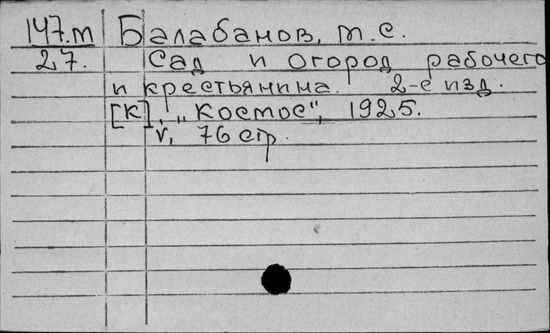 147.m Балабанов, м. с.
27. Сад и огород рабочего
и крестьянина. 2-е изд.
[К], „Космос", 1925.
V, 76 стр.